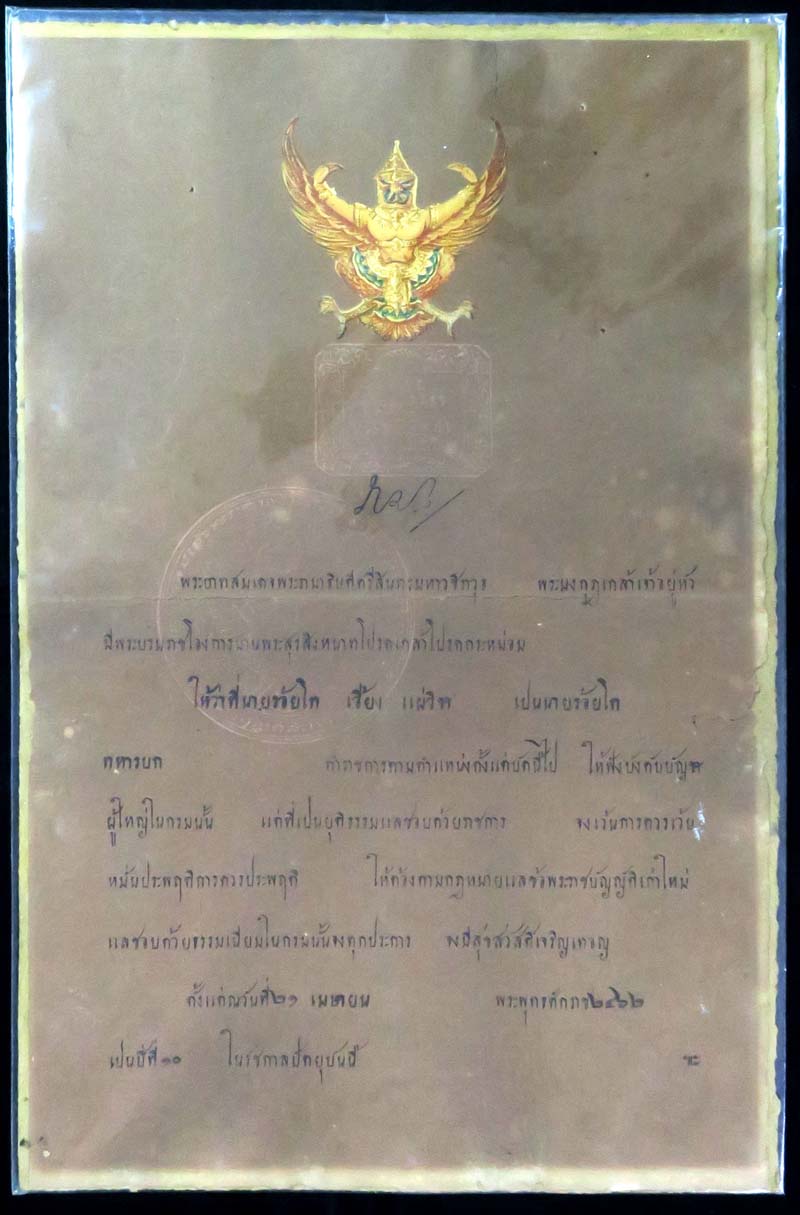 พระบาทสมเดจพระรามาธิบดีศรีสินทรมหาวชิราวุธ พระมงกุฎเกล้าเจ้าอยู่หัว
มีพระบรมราชโองการมานพระสุรสิงหนาทโปรดเกล้าโปรดกระหม่อม
ให้ว่าที่นายร้อยโท เป็นนายร้อยโท
ทหารบก ทำราชการตามตำแหน่งตั้งแต่บัดนี้ไป ให้ฟังบังคับบัญชา
ผู้ใหญ่ในกรมนั้น แต่ที่เป็นยุติธรรมแลชอบด้วยราชการ จงเว้นการควรเว้น
หมั่นประพฤติการควรประพฤติ ให้ต้องตามกฎหมายแลข้อพระราชบัญญัติเก่าใหม่
แลชอบด้วยธรรมเนียมในกรมนั้นจงทุกประการ จงมีสุขสวัสดิ์เจริญเทอญ
ตั้งแต่ณวันที่ ๒๑ เมษายน พระพุทธศักราช ๒๔๖๒
เปนปีที่ ๑๐ ในรัชกาลปัตยุบันนี้ ฯะ